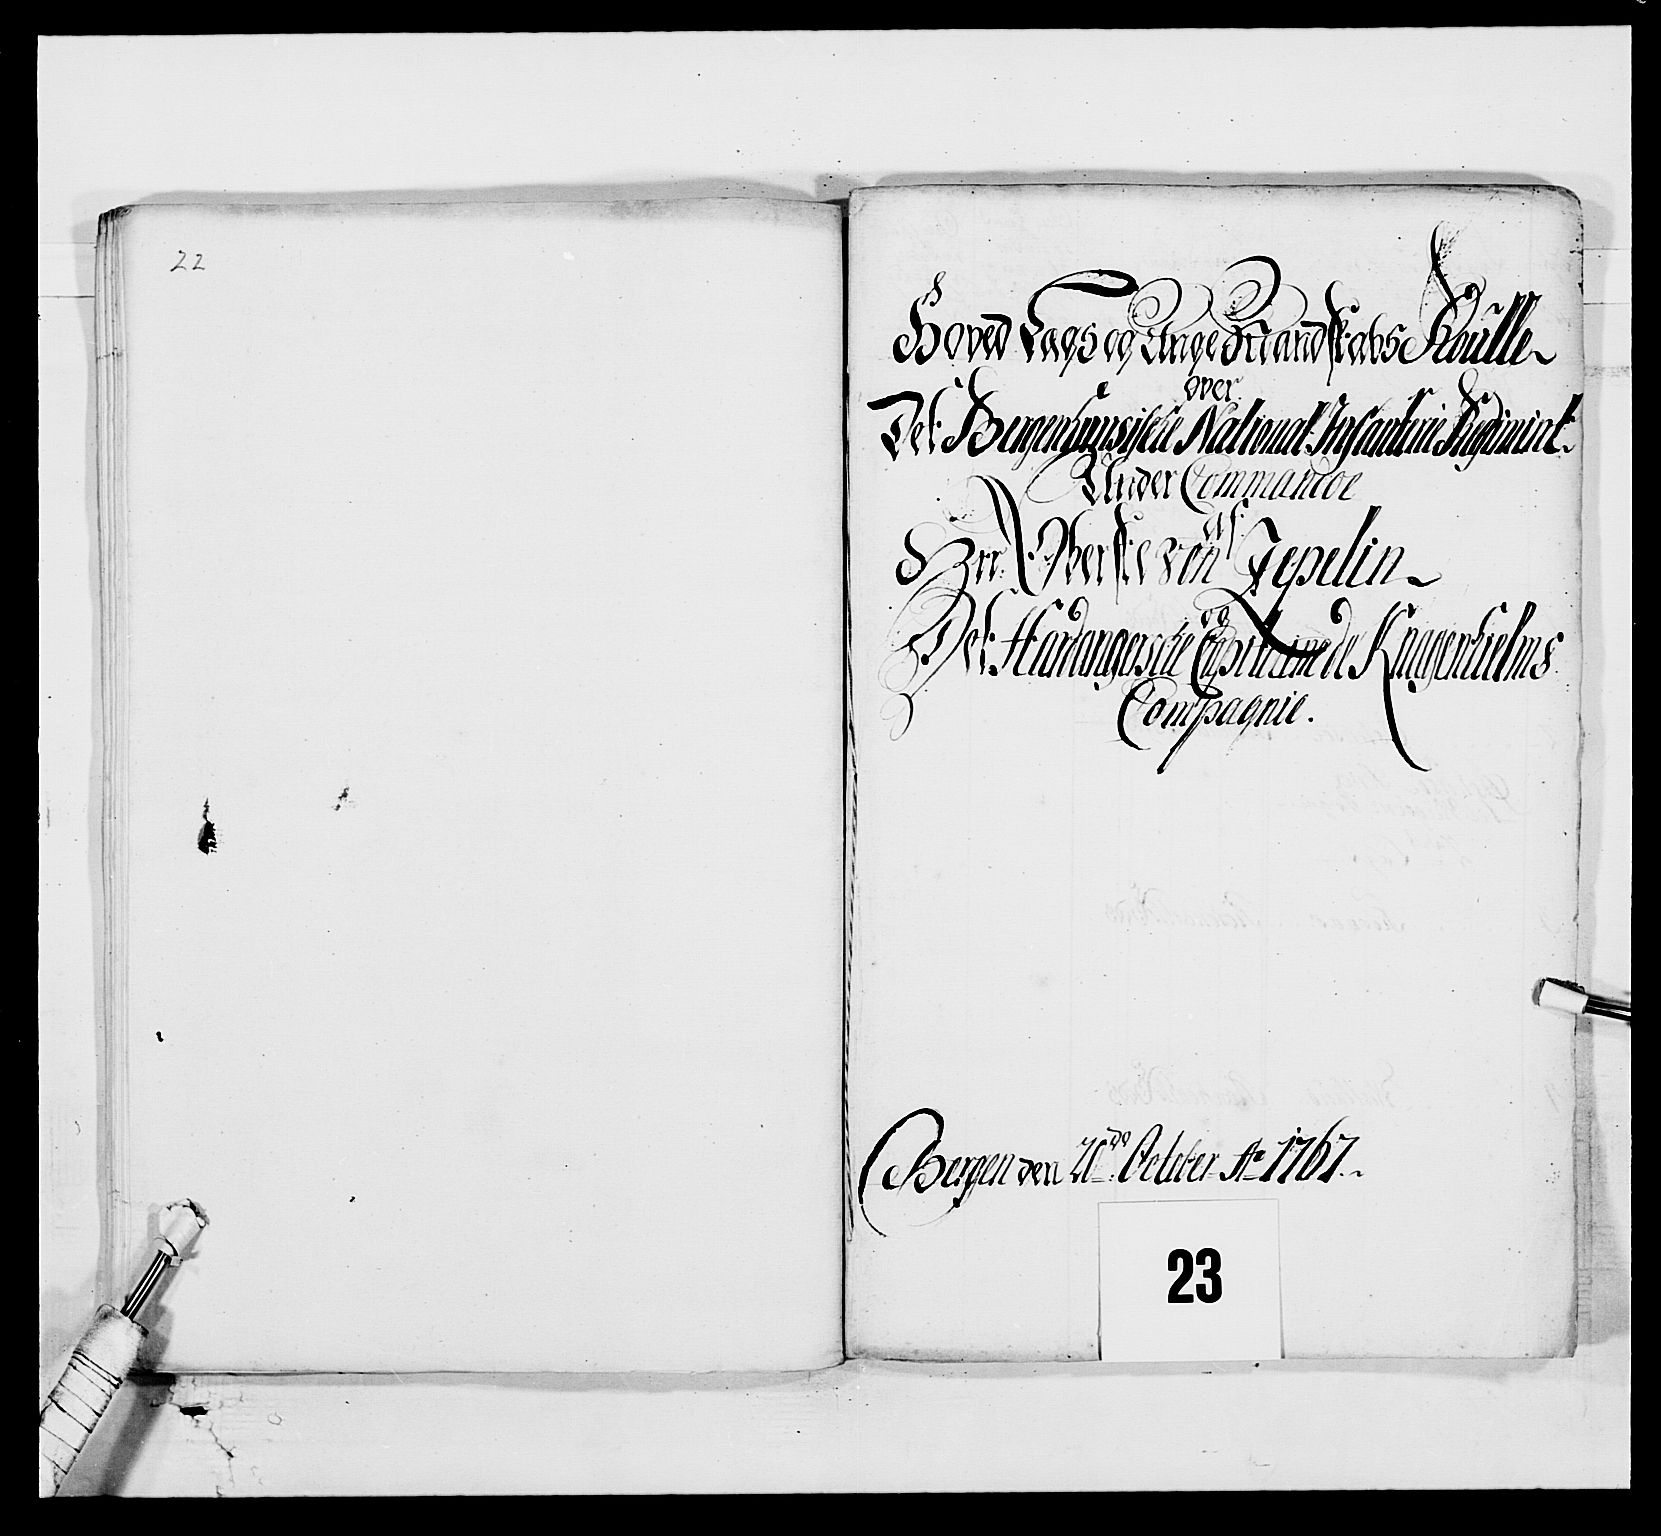 22
Hoved Lags og Unge Mandskabs Roulle
over
Det Bergenhuusiske National Infanterie Regiment
Under Commandoe
af
Hrr Oberste von Zepelin
og
Det Hardangerske Capitaine de Knagenhielms
Compagnie.
Bergen den October Ao 1767.
23